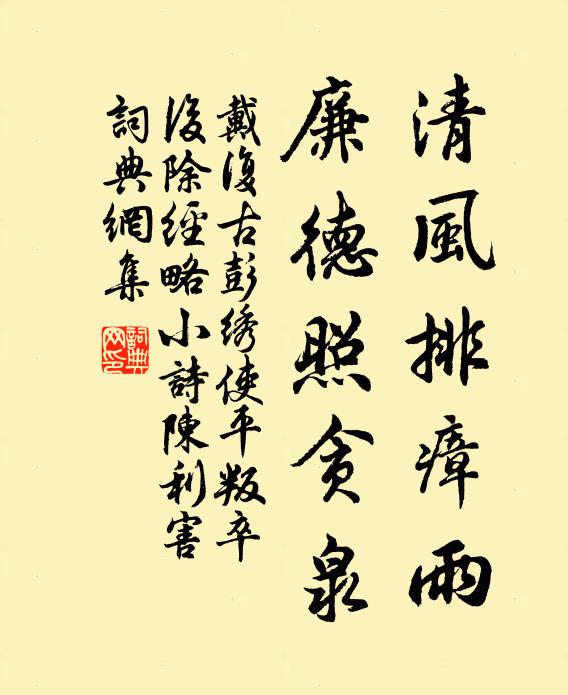 清風排瘴雨
廉德照貪泉
戴復古彭綉使平叛卒
後除經略小詩陳利害
詞典網集
詞典网印